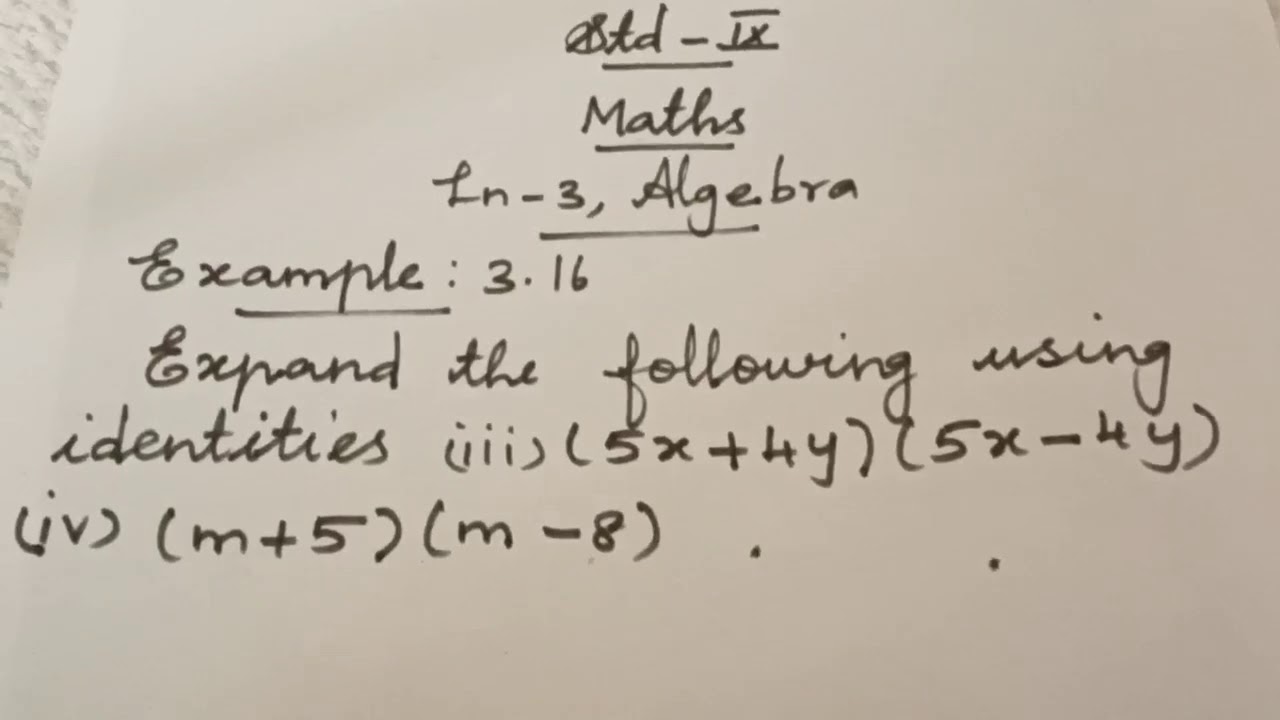 Std - IX
Maths
Ln - 3, Algebra
Example : 3.16
Expand the following using
identities (iii) (5x + 4y) (5x - 4y)
(iv) (m + 5) (m - 8) .   .